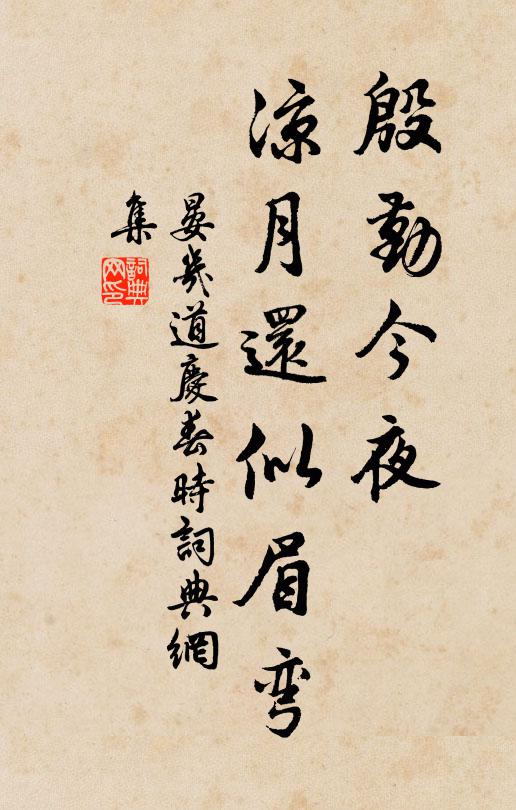 殷勤今夜
涼月還似眉弯
晏幾道慶春時詞典網
集
詞典
网印